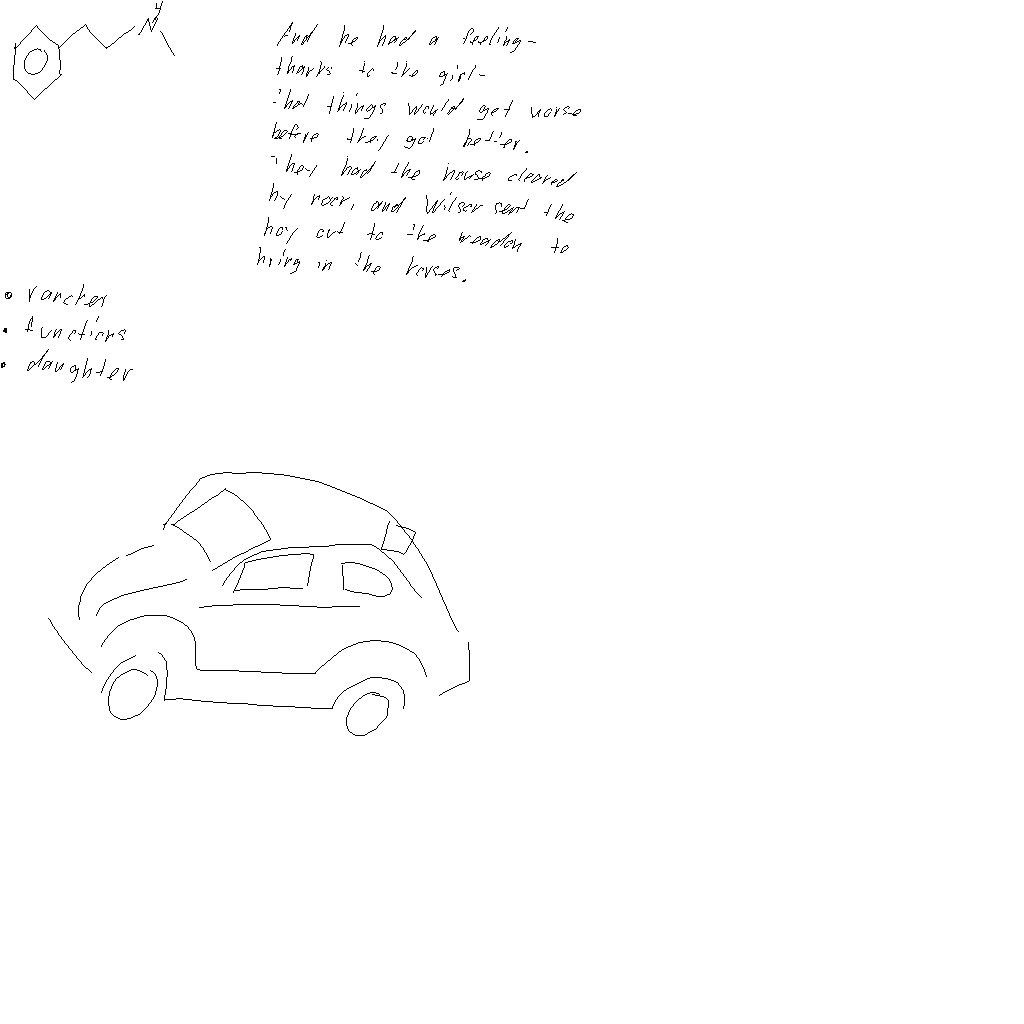 H
N
And he had a feeling-
thanks to the girl-
that things would get worse
before they got better.
They had the house cleared
by noon, and Wilson sent the
boy out to the meadow to
bring in the horses.
• rancher
• functions
• daughter